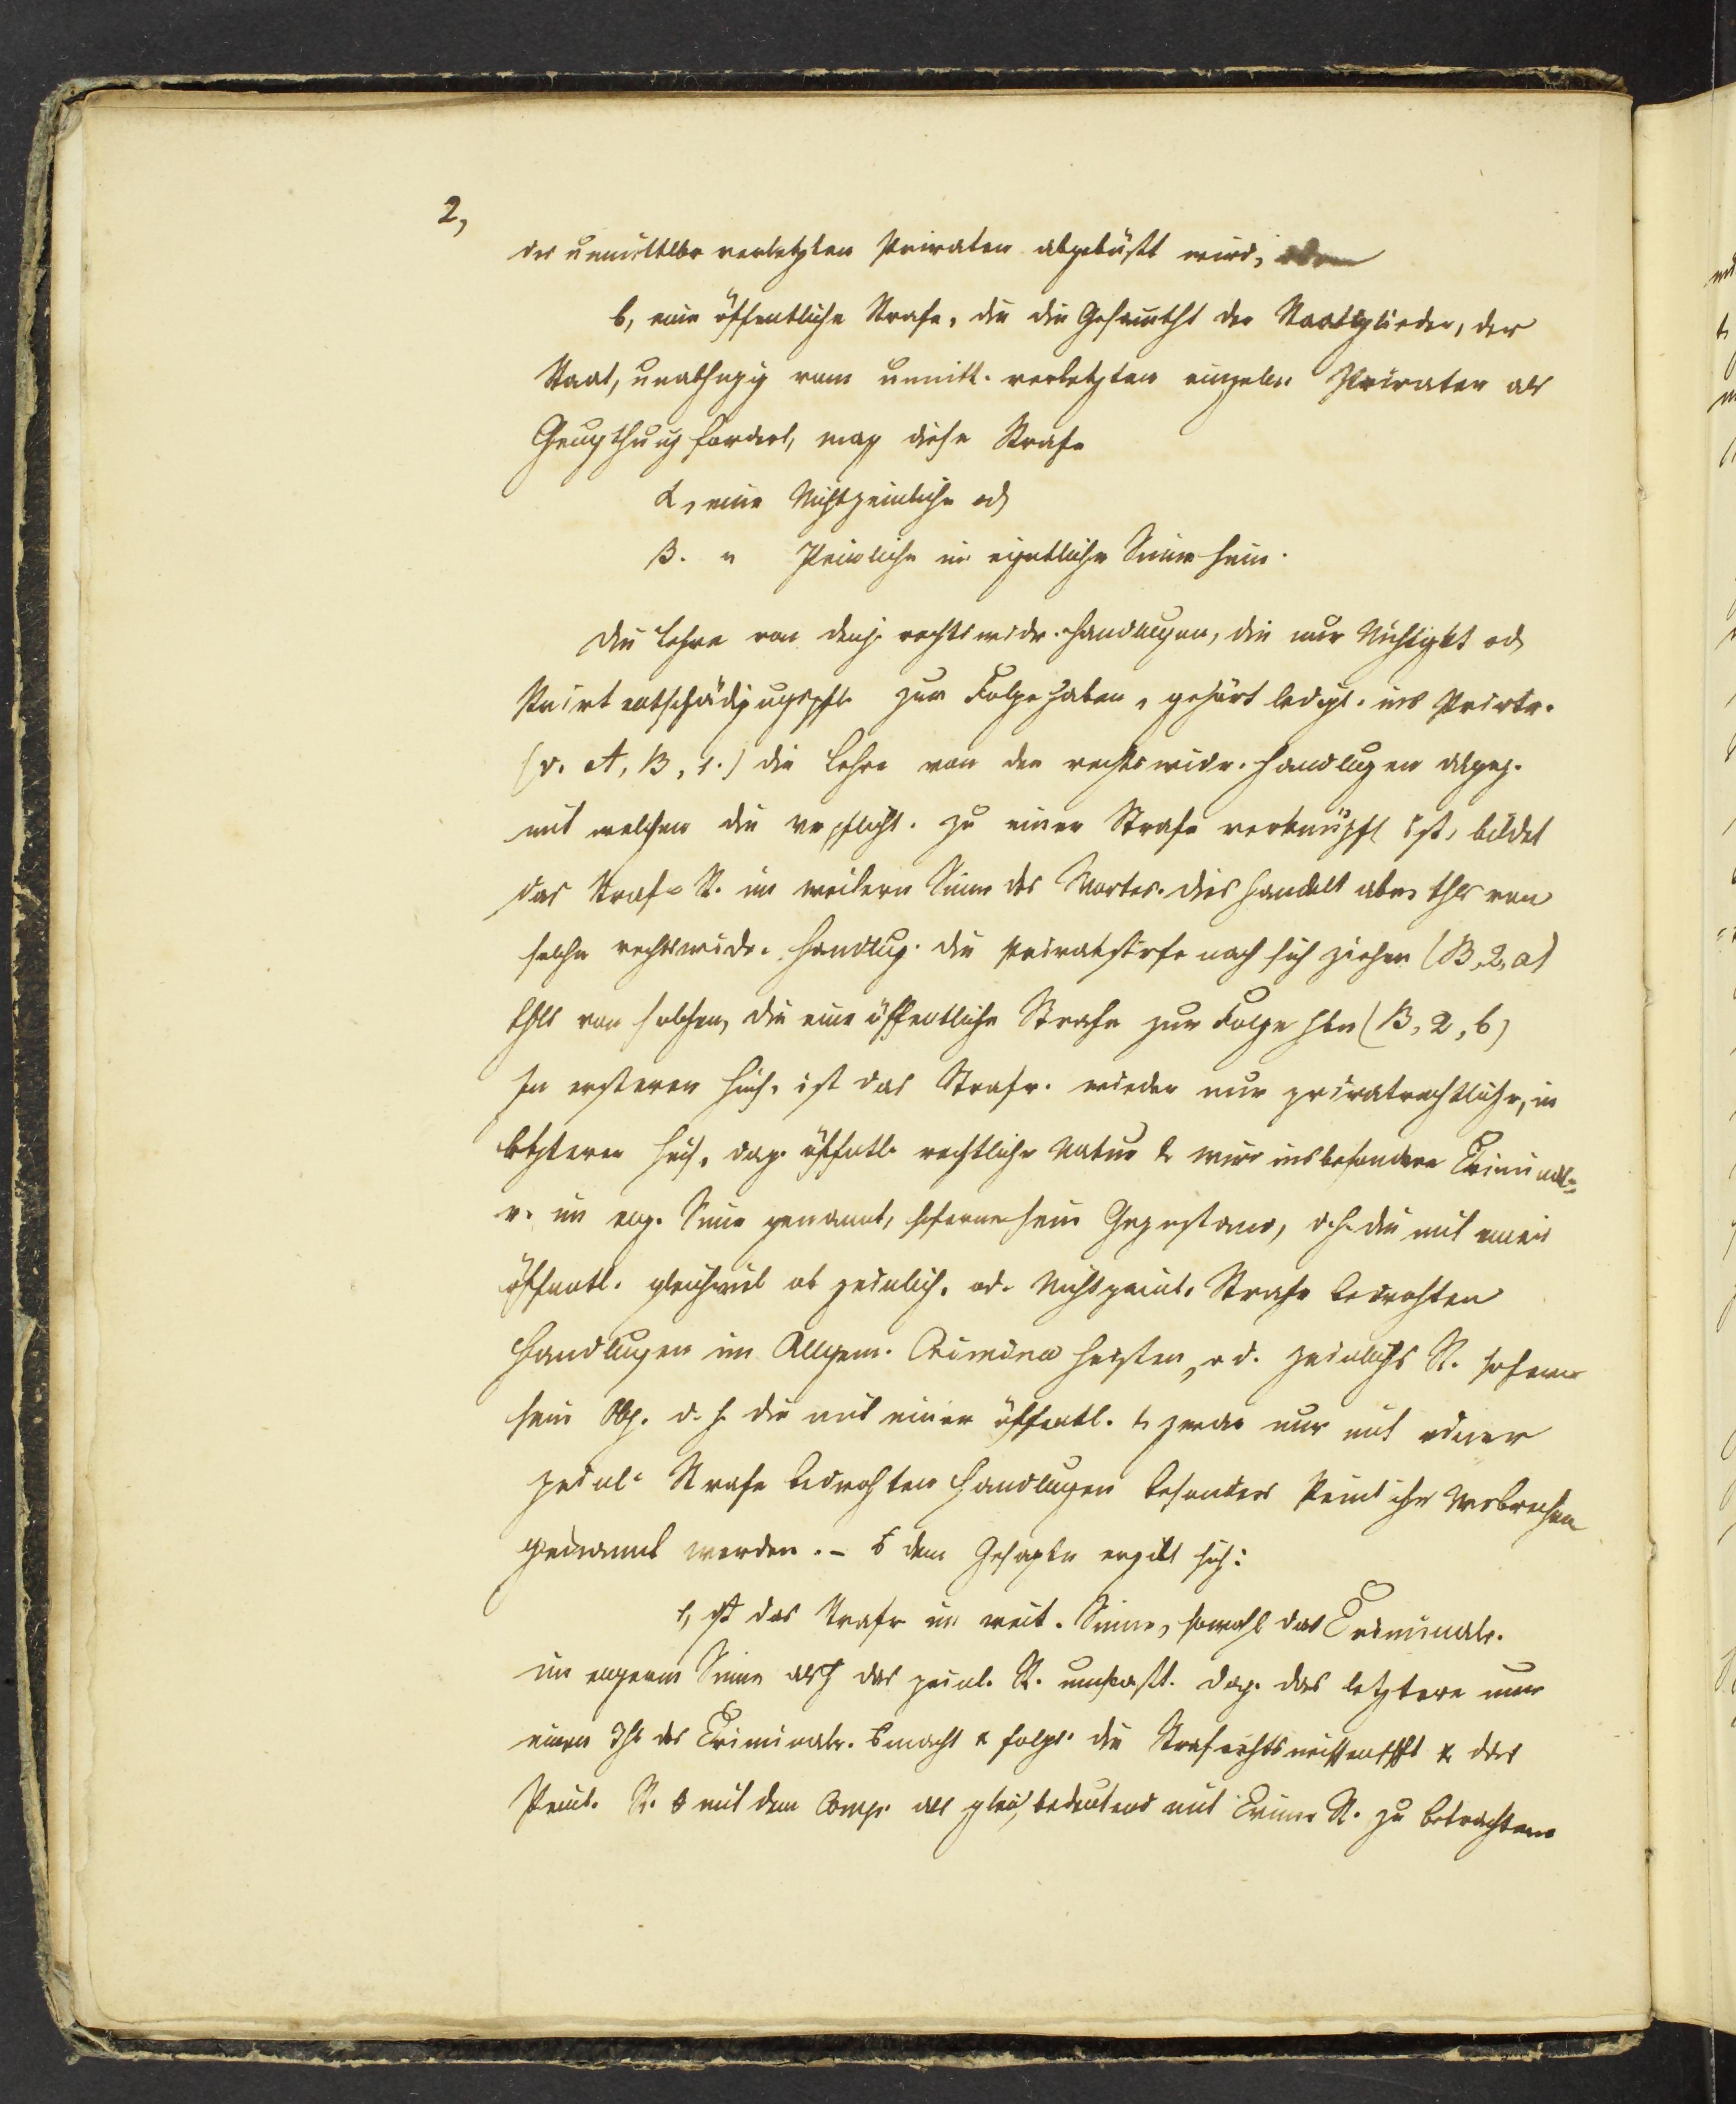 2,
der unmittelbr verletzten Privaten abgebüßt wird,
b, eine öffentliche Strafe, die die Gesammtht der Staatsglieder, der
Staat, unabhngig vom unmitt. verletzten einzelen Privaten als
Genugthuung fordert, mag diese Strafe
α, eine Nichtpeinliche od
β. " Peinliche im eigentlichen Sinne sein.
Die Lehre von denj. rechtswidr. Handlugen, die nur Nichtigkt od
Privtentschädigugspfl. zur Folge haben, gehört ledigl. ins Privtr.
(v. A, B, 1.) die Lehre von den rechtswidr. Handlugen dageg.
mit welchen die verpflicht. zu einer Strafe verknüpft ist, bildet
das Straf-R. im weitern Sinne des Wortes. Dies handelt aber thls von
solchen rechtswidr. Handlug. die Privatstrafe nach sich ziehen (B, 2, a)
thls von solchen, die eine öffentliche Strafe zur Folge hbn (B, 2, b)
In ersterer Hins. ist das Strafr. wieder nur privatrechtlicher, in
letzterer Hins. dag. öffentl. rechtlicher Natur & wird insbesondere Criminal-
r. im eng. Sinne genannt, sofern sein Gegenstand, d.h. die mit einer
öffentl. gleichviel ob peinlich. od. Nichtpeinl. Strafe bedrohten
Handlugen im Allgem. Crimina heißen, od. peinliches R. sofern
sein Obj. d. h. die mit einer öffentl. & zwar nur mit einer
peinl. Strafe bedrohten Handlugen besonders Peinliche Verbrechen
genannt werden. – dem Gesagten ergibt sich:
1, daß das Strafr im weit. Sinne, sowohl das Criminalr.
im engeren Sinne als das peinl. R. umfaßt. dag. das letztere nur
einen Thl des Criminalr. macht & folgl. die Strafrechtswissenschft & das
Peinl. R. mit dem Comp. als gleichbedeutend mit Crim. R. zu betrachten